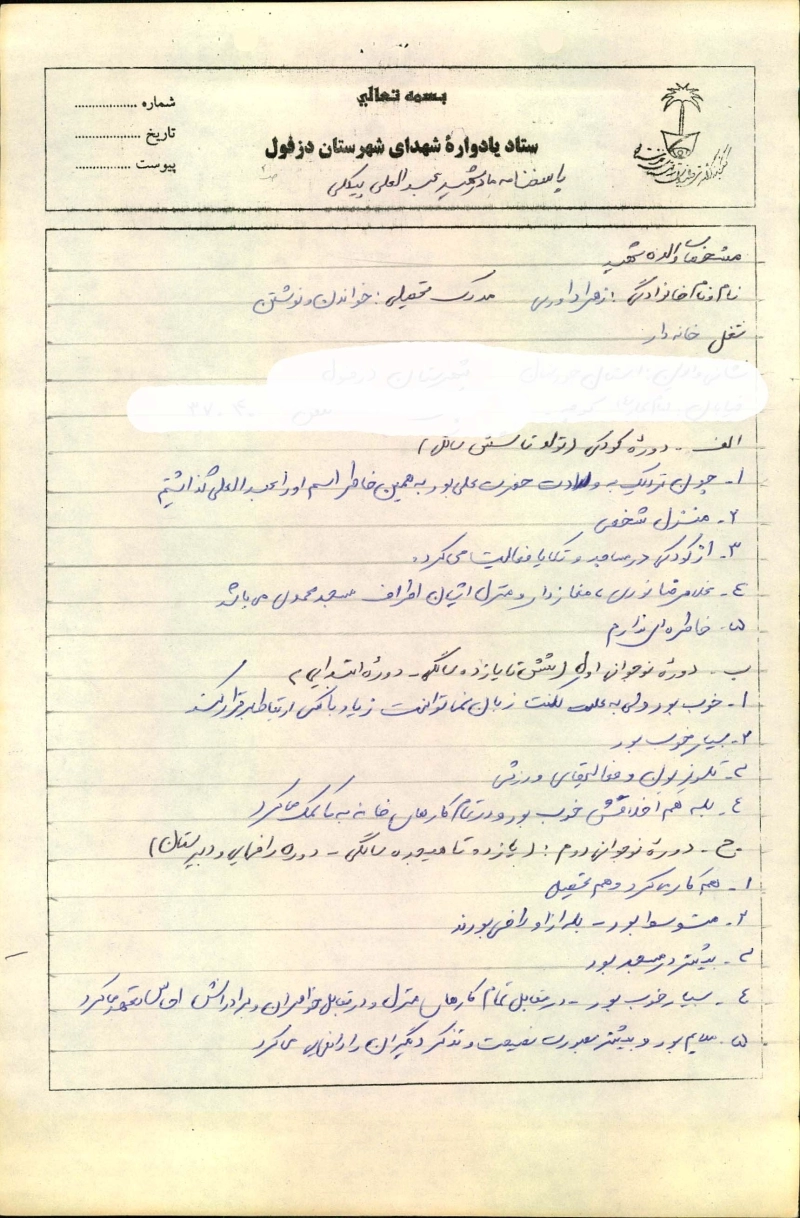 بسمه تعالی
ستاد یادوارهٔ شهدای شهرستان دزفول
شماره .................
تاریخ .................
پیوست ...............
پاسخنامه مادر شهید عبدالعلی بیگلی
مشخصات والده شهید
نام و نام خانوادگی : زهرا داوری مدرک تحصیلی : خواندن و نوشتن
شغل خانه دار
الف - دوره کودکی (تولد تا شش سالگی)
۱- چون نزدیک به ولادت حضرت علی بود به همین خاطر اسم او را عبدالعلی گذاشتیم
۲- منزل شخصی
۳- از کودکی در مساجد و تکایا فعالیت می کرد.
٤- غلامرضا نوری، مغازه دار و منزل ایشان اطراف مسجد محمدی می باشد
۵- خاطره ای ندارم
ب - دورهٔ نوجوانی اول (شش تا یازده سالگی - دورهٔ ابتدایی)
۱- خوب بود ولی به علت لکنت زبان نمی توانست زیاد با کسی ارتباط برقرار کند
۲- بسیار خوب بود
۳- تلویزیون و فعالیتهای ورزشی
٤- بله هم اخلاقش خوب بود و در تمام کارهای خانه به ما کمک می کرد
ج - دورهٔ نوجوانی دوم : (یازده تا هیجده سالگی - دوره راهنمایی و دبیرستان)
۱- هم کار می کرد و هم تحصیل
۲- متوسط بود - بله از او راضی بودند
۳- بیشتر در مسجد بود
٤- بسیار خوب بود - در مقابل تمام کارهای منزل و در مقابل خواهران و برادرانش احساس تعهد می کرد
۵- ملایم بود و بیشتر بصورت نصیحت و تذکر دیگران را راهنمایی می کرد